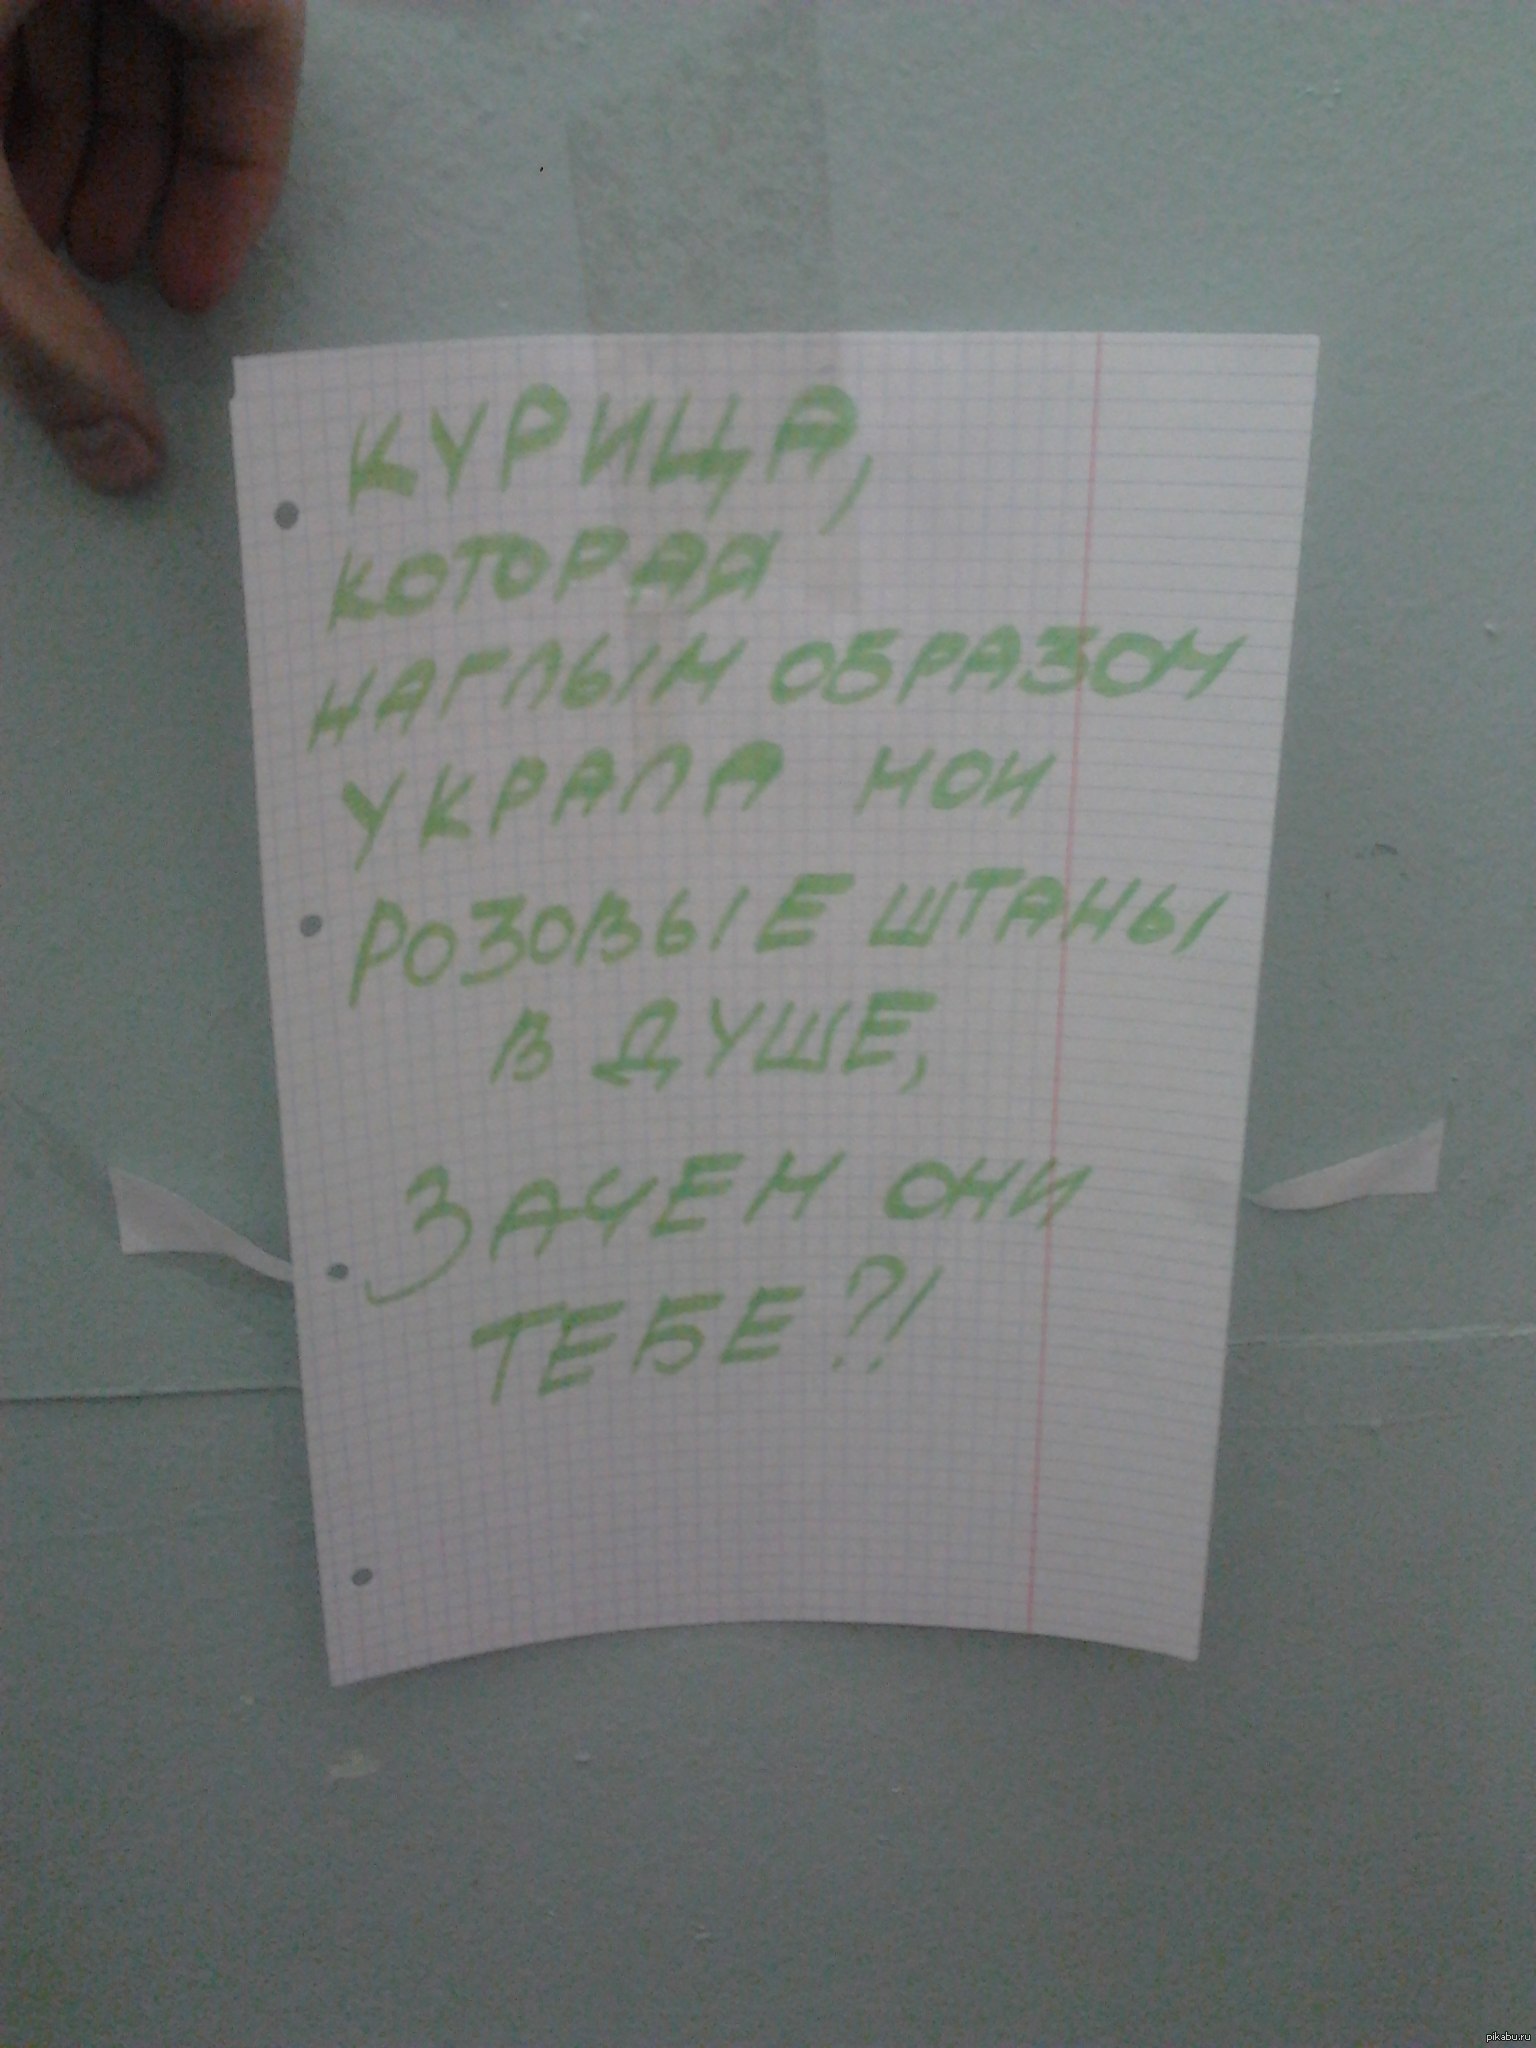 КУРИЦА,
КОТОРАЯ
НАГЛЫМ ОБРАЗОМ
УКРАЛА МОИ
РОЗОВЫЕ ШТАНЫ
В ДУШЕ,
ЗАЧЕМ ОНИ
ТЕБЕ?!
pikabu.ru